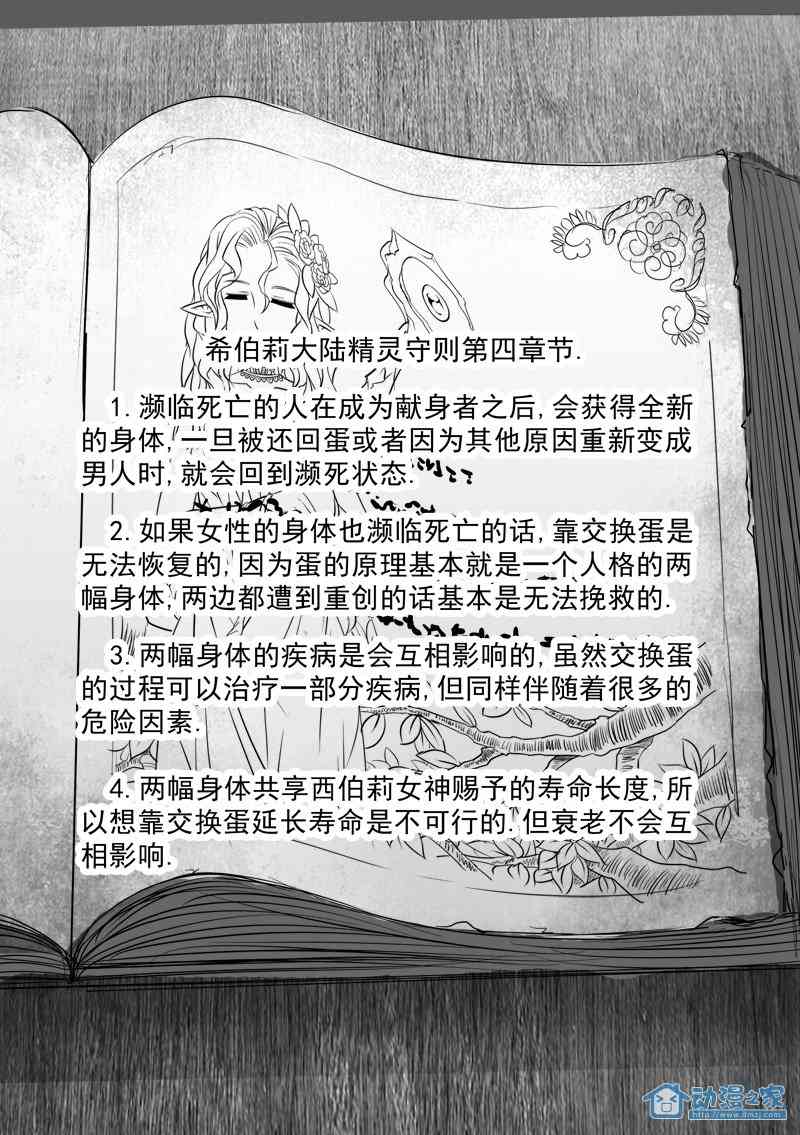 希伯莉大陆精灵守则第四章节.
1.濒临死亡的人在成为献身者之后,会获得全新
的身体,一旦被还回蛋或者因为其他原因重新变成
男人时,就会回到濒死状态.
2.如果女性的身体也濒临死亡的话,靠交换蛋是
无法恢复的,因为蛋的原理基本就是一个人格的两
幅身体,两边都遭到重创的话基本是无法挽救的.
3.两幅身体的疾病是会互相影响的,虽然交换蛋
的过程可以治疗一部分疾病,但同样伴随着很多的
危险因素.
4.两幅身体共享西伯莉女神赐予的寿命长度,所
以想靠交换蛋延长寿命是不可行的.但衰老不会互
相影响.
动漫之家
http://www.dmzj.com